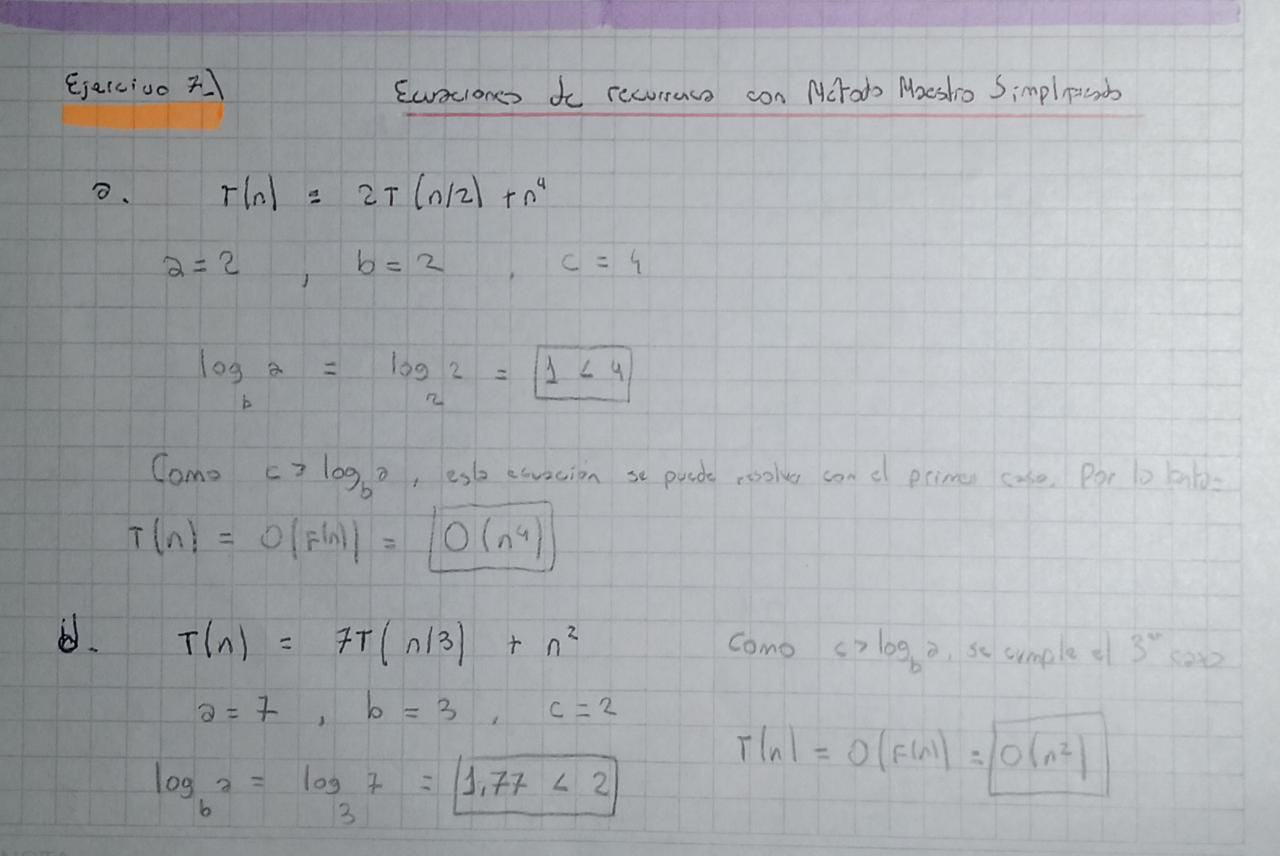 Ejercicio 7_) Ecuaciones de recurrencia con Método Maestro Simplificado
a. T(n) = 2T(n/2) + n⁴
a = 2 , b = 2 , c = 4
log_b a = log_2 2 = 1 < 4
Como c > log_b a, esta ecuación se puede resolver con el primer caso. Por lo tanto=
T(n) = O(F(n)) = O(n⁴)
d. T(n) = 7T(n/3) + n²
a = 7 , b = 3 , c = 2
log_b a = log_3 7 = 1,77 < 2
Como c > log_b a, se cumple el 3er caso
T(n) = O(F(n)) = O(n²)